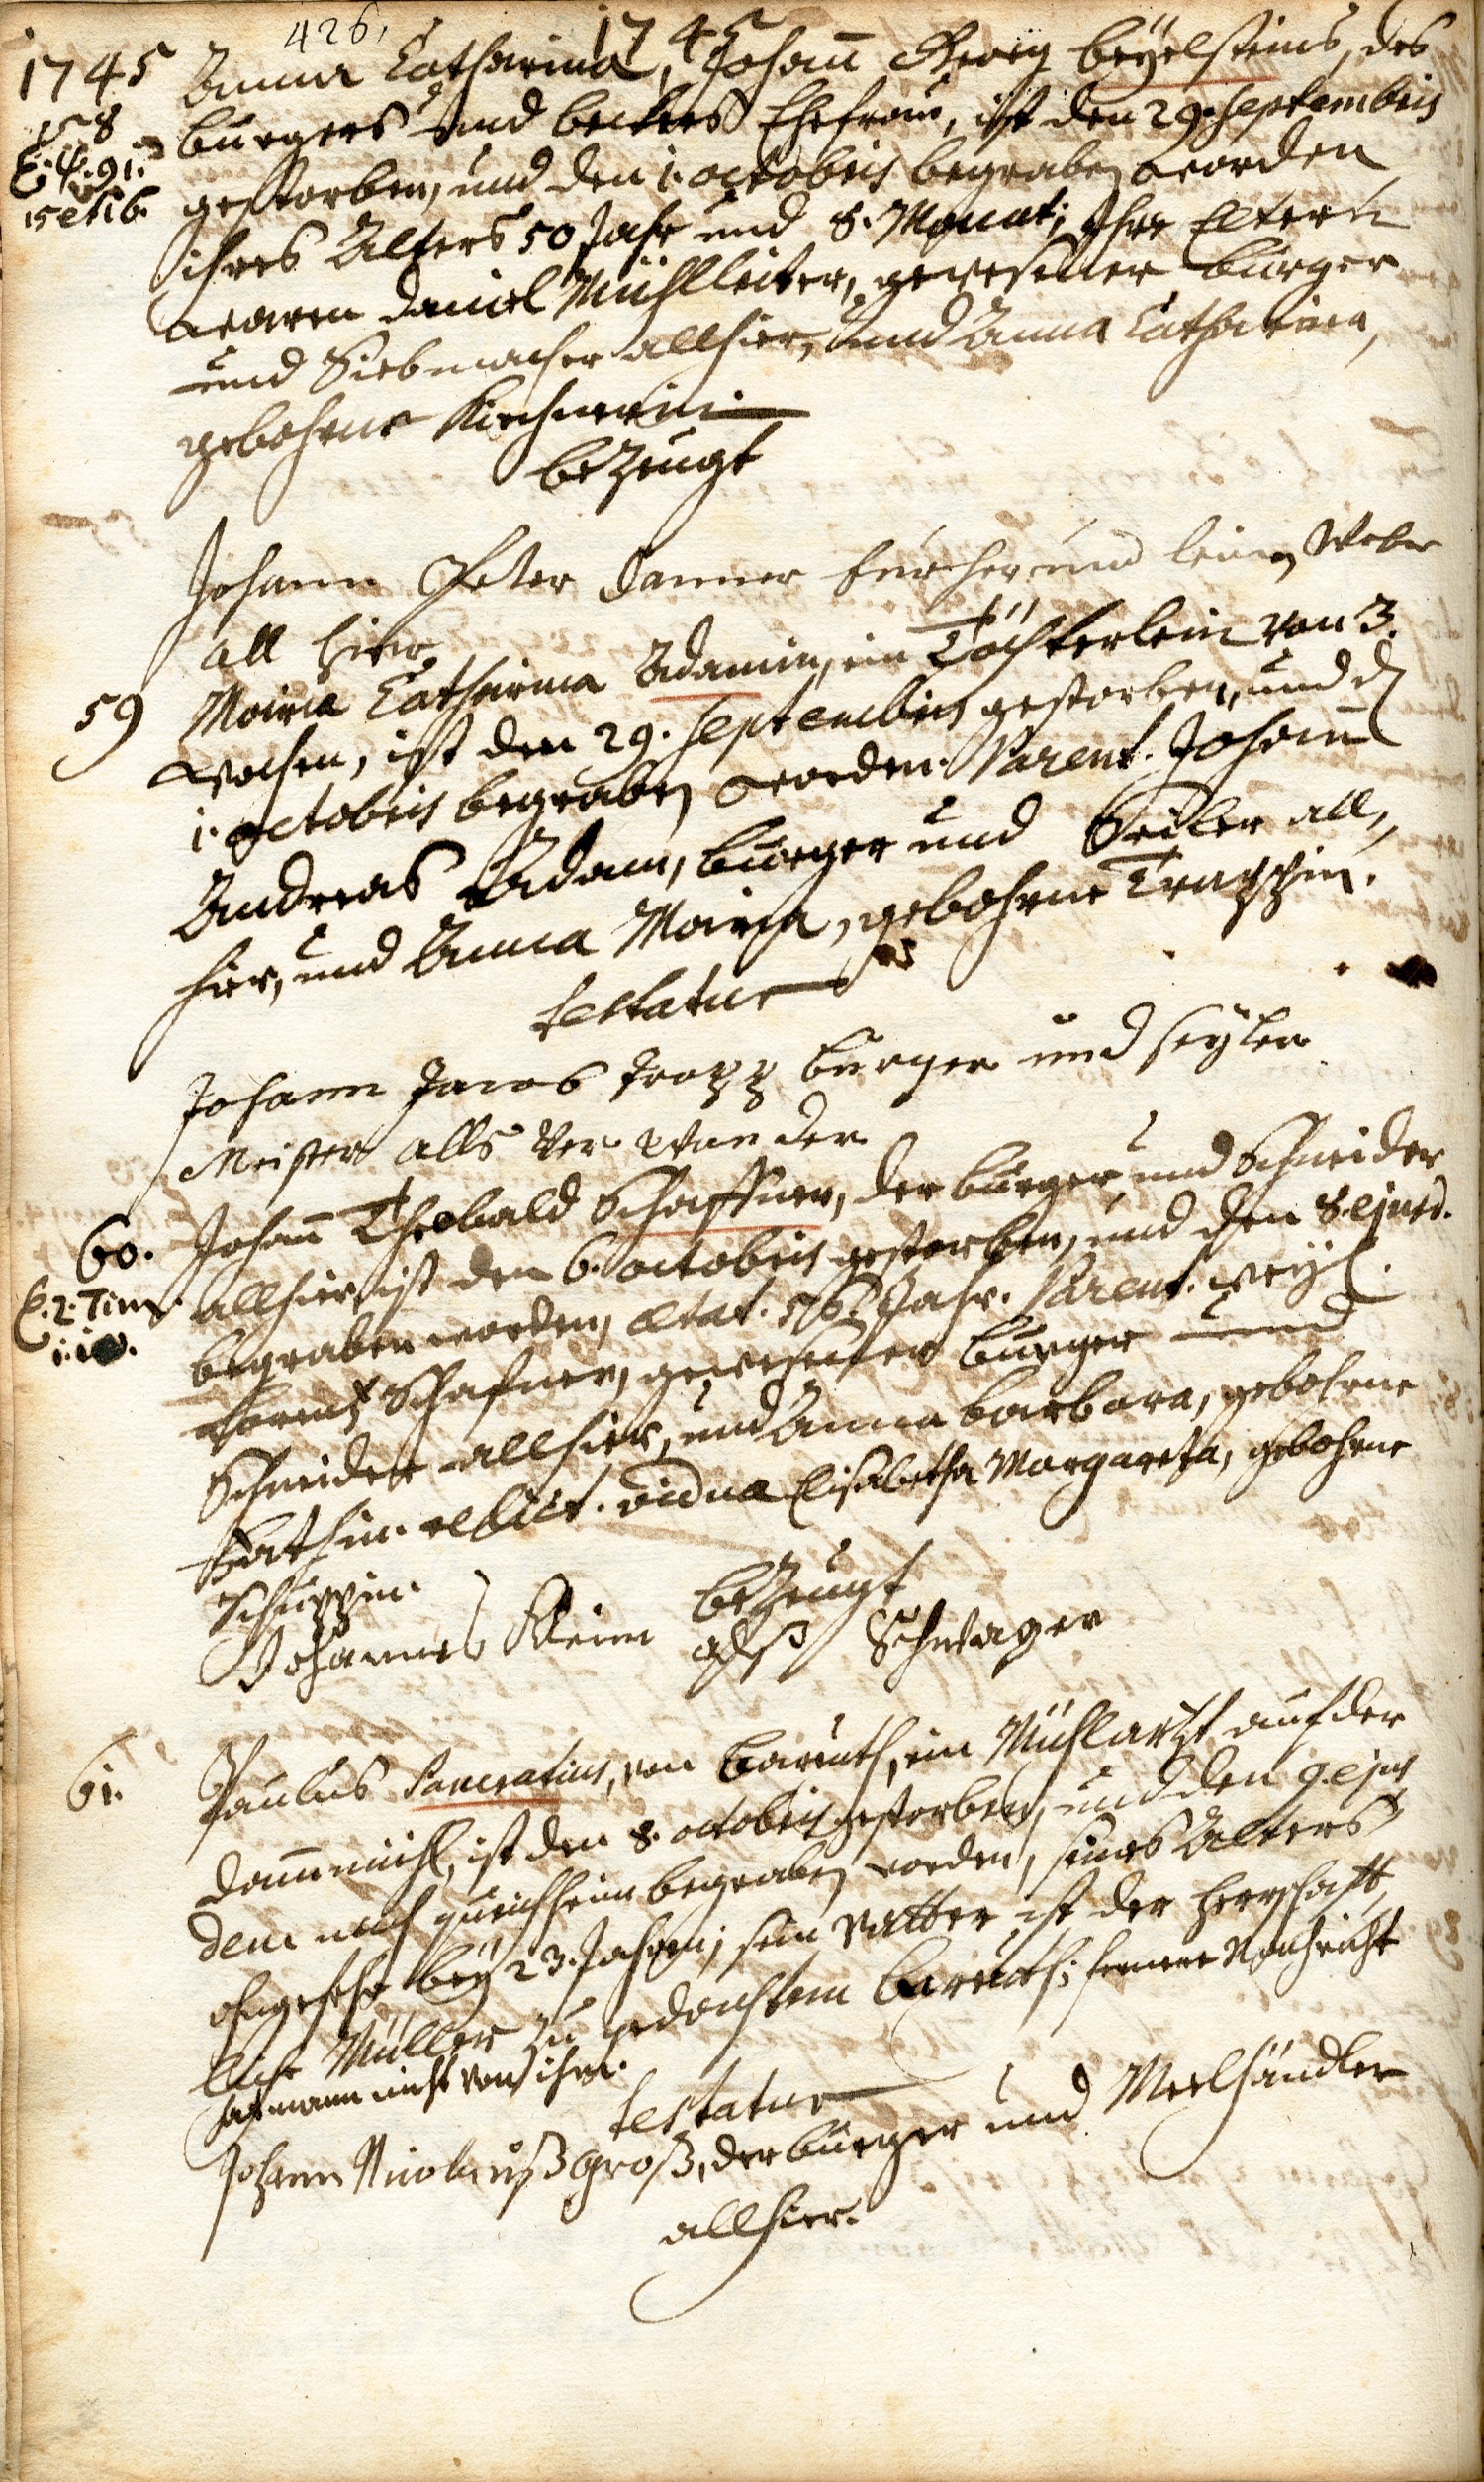 426.
1745
1745
58
E. ψ. 91.
15 et 16.
Anna Catharina, Johann Georg Beyelsteins, des
burgers und beckers Ehefrau, ist den 29. Septembris
gestorben, und den 1. octobris begraben worden
ihres Alters 50 Jahr und 8. Monat; Ihre Eltern
waren Daniel Mühlleiter, gewesener burger
und Siebmacher allhier, und Anna Catharina,
gebohrne Kirchnerin.
bezeugt
Johann Peter Danner und leinen Weber
all hier
59
Maria Catharina Adamin, ein Töchterlein von 3.
wochen, ist den 29. Septembris gestorben, und d
1. octobris begraben worden. Parent. Johann
Andreas Adam, burger und Seiler all-
hier, und Anna Maria, gebohrne Trappin.
testatur
Johann Jacob Trapp burger und seyler
Meister alls
60.
E. 2. Tim.
Johann Theobald Schaffner, der burger und Schneider
allhier ist den 6. octobris gestorben, und den 8. ejusd.
begraben worden, ætat. Jahr. Parent. weyl.
Lorentz Schafner, gewesener burger und
Schneider allhier, und Anna barbara, gebohrne
relict. vidua Elisabetha Margareta, gebohrne
Schuppin.
bezeugt
Johannes Klein alß Schwager
61.
Paulus Pancratius, von Bareuth, ein Mühlartzt auf der
Dammmühl, ist den 8. octobris gestorben, und den 9. ejus
dem nach queichheim begraben worden, seines Alters
ohngefehr bey 23. Jahren; sein Vatter ist der herrschafft
liche Müller zu gedachtem Bareuth; fernere Nachricht
hat mann nicht von ihm.
testatur
Johann Nicolauß Groß, der burger und Meelhändler
allhier.